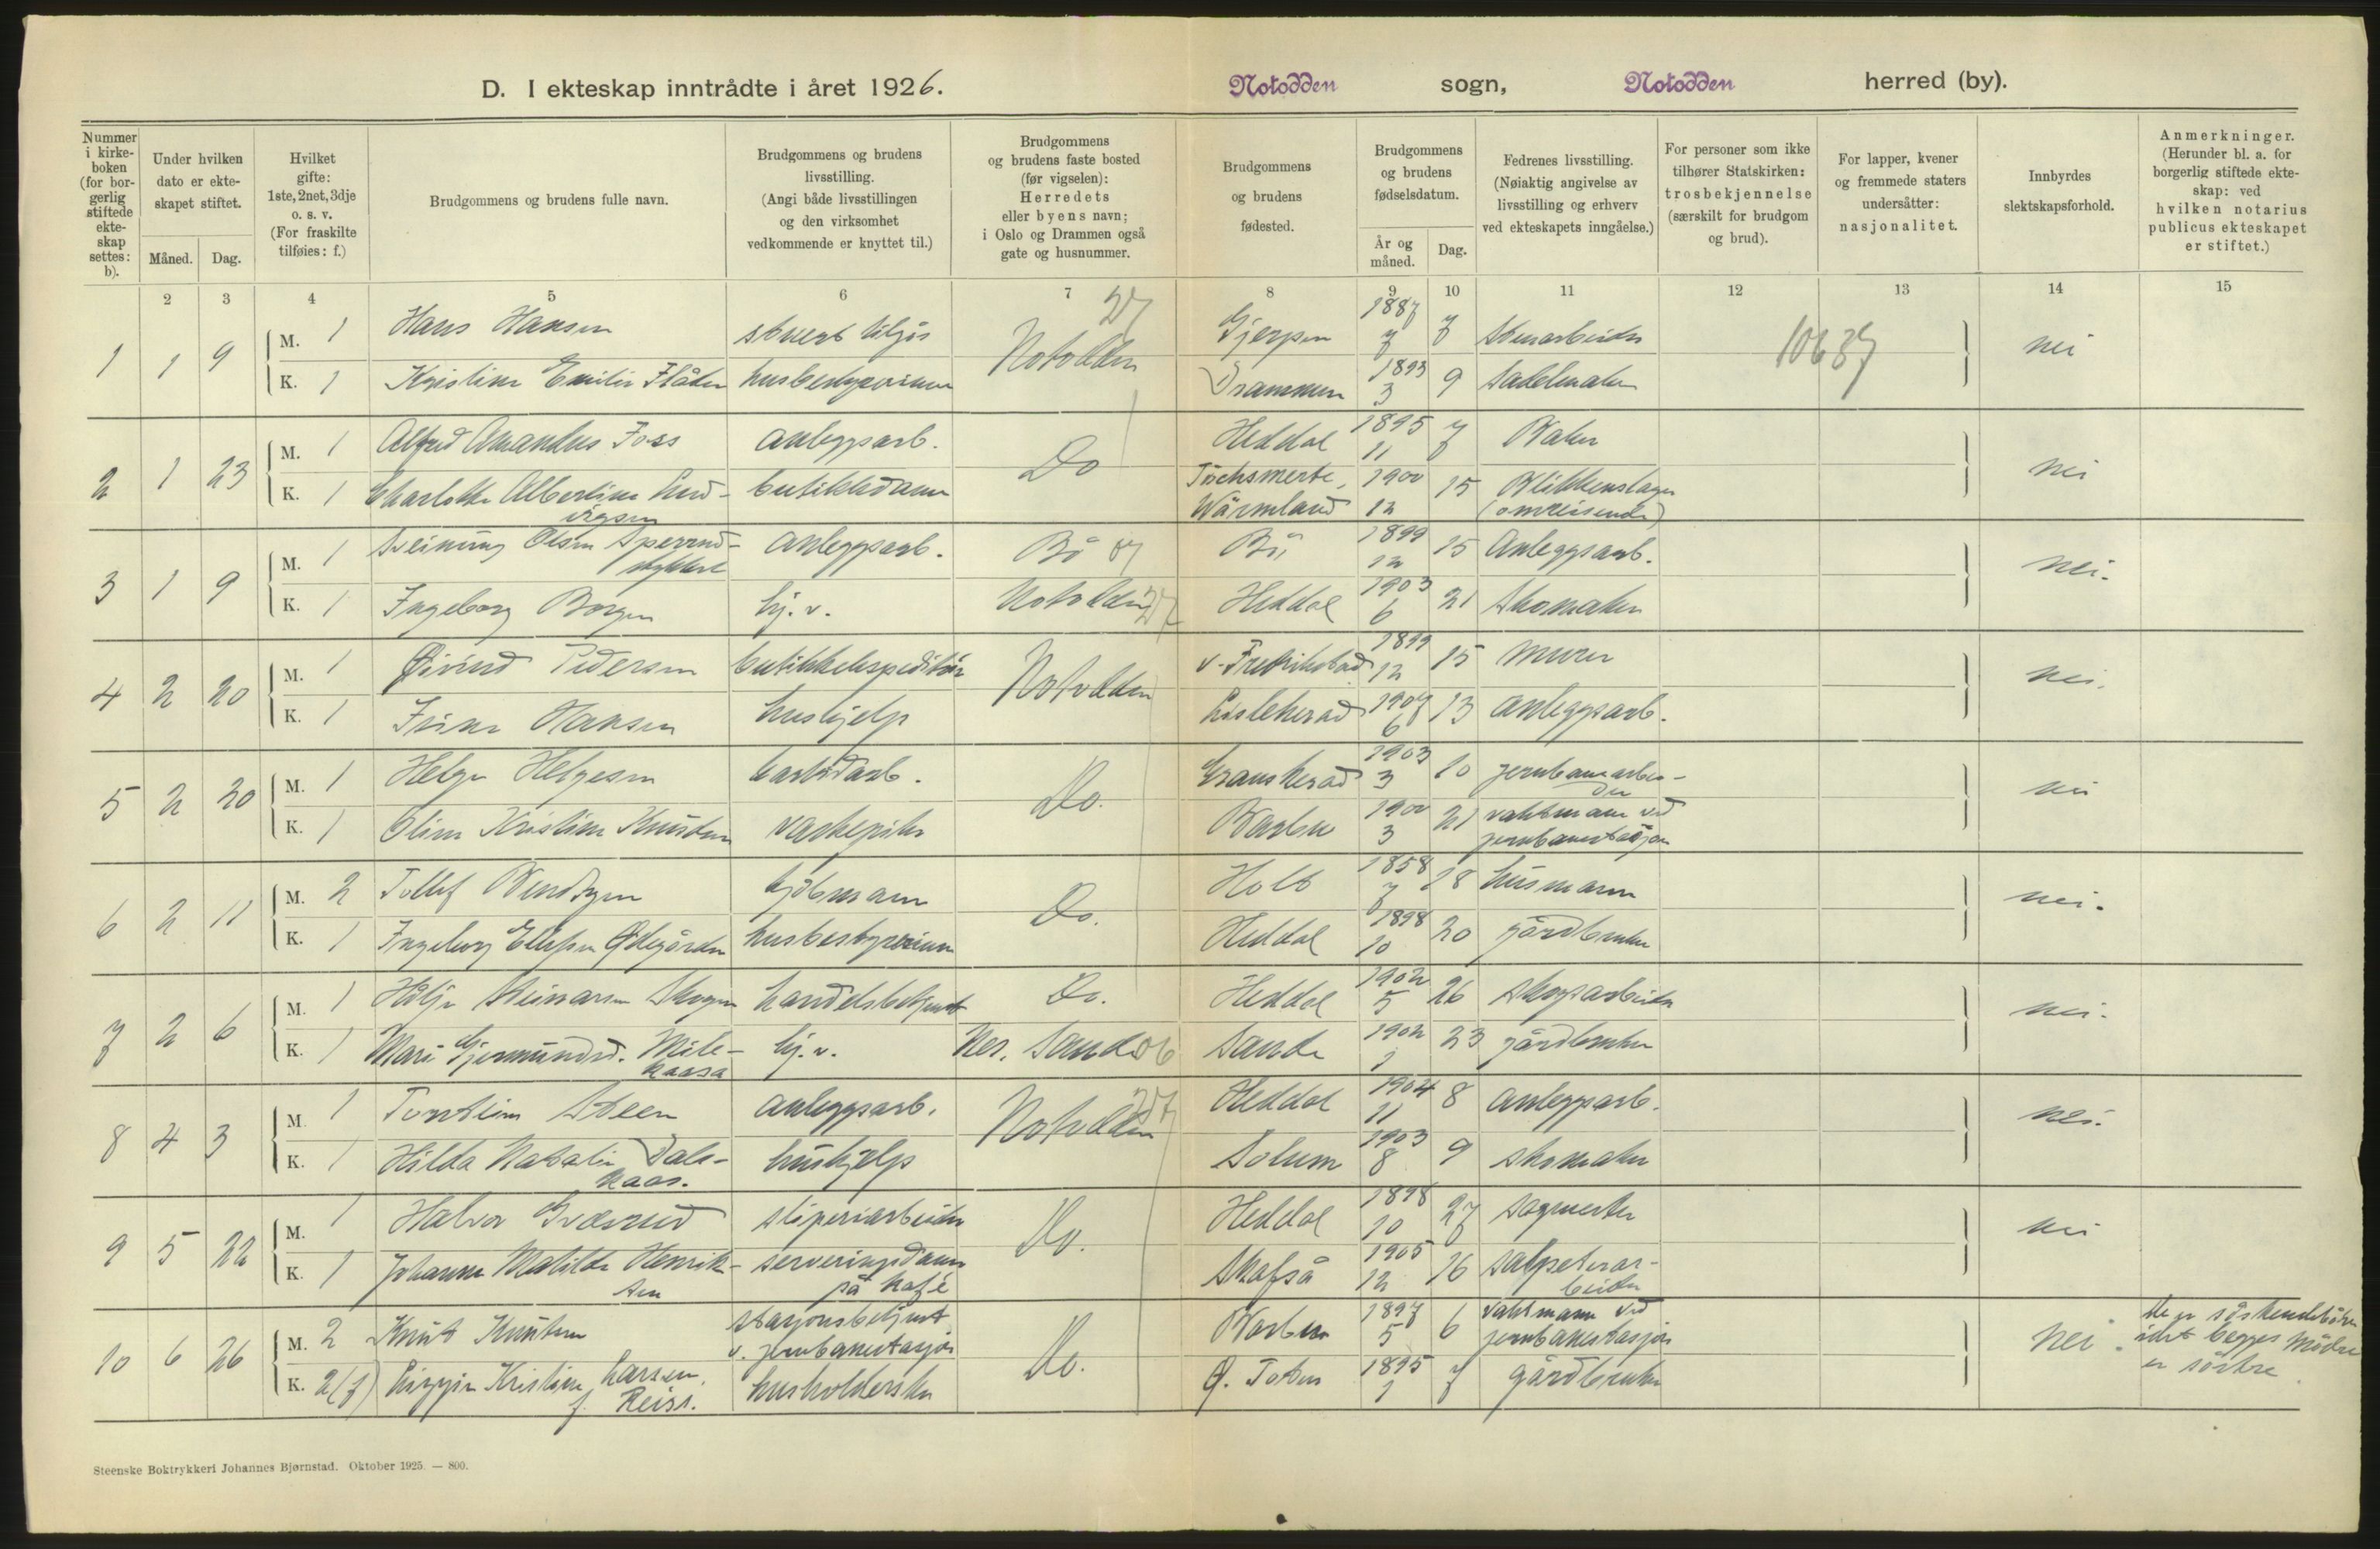 D. I ekteskap inntrådte i året 1926. Notodden sogn, Notodden herred (by).
Nummer i kirke-boken (for bor-gerlig stiftede ekte-skap settes: b).
Under hvilken dato er ekte-skapet stiftet.
Måned. Dag.
Hvilket gifte: 1ste, 2net, 3dje o. s. v. (For fraskilte tilføies: f.)
Brudgommens og brudens fulle navn.
Brudgommens og brudens livsstilling. (Angi både livsstillingen og den virksomhet vedkommende er knyttet til.)
Brudgommens og brudens faste bosted (før vigselen): Herredets eller byens navn; i Oslo og Drammen også gate og husnummer.
Brudgommens og brudens fødested.
Brudgommens og brudens fødselsdatum.
År og måned. Dag.
Fedrenes livsstilling. (Nøiaktig angivelse av livsstilling og erhverv ved ekteskapets inngåelse.)
For personer som ikke tilhører Statskirken: trosbekjennelse (særskilt for brudgom og brud).
For lapper, kvener og fremmede staters undersåtter: nasjonalitet.
Innbyrdes slektskapsforhold.
Anmerkninger. (Herunder bl. a. for borgerlig stiftede ekte-skap: ved hvilken notarius publicus ekteskapet er stiftet.)
2 3 4 5 6 7 8 9 10 11 12 13 14 15
27
10637
1 1 9 M. 1 Hans Hansen Notodden Gjerpen 1887 7 7 Stenarbeider nei
K. 1 Kristine Emilie Flåten husbestyrerinne Drammen 1893 3 9 Sadelmaker
2 1 23 M. 1 Alfred Amandus Foss anleggsarb. Do Heddal 1895 11 7 Baker nei
K. 1 Charlotte Albertine Lud-vigsen butikkdame Töchsmerke, Wärmland 1900 12 15 Blikkenslager (omreisende)
3 1 9 M. 1 Steinung Olsen Sperrud-stykket anleggsarb. Bö 07 Bö 1899 12 15 Anleggsarb. nei.
K. 1 Ingeborg Borgen hj. v. Notodden 27 Heddal 1903 6 21 Skomaker
4 2 20 M. 1 Øivind Pedersen butikkekspeditör Notodden v. Fredrikstad 1899 12 15 Murer nei.
K. 1 Hansen hushjelp Lisleherad 1907 6 13 anleggsarb.
5 2 20 M. 1 Helge Helgesen Do. Gransherad 1903 3 10 jernbanearbei-der nei
K. 1 Oline Kristine Knutsen vaskepike Barbu 1900 3 21 vaktmann ved jernbanestasjon
6 2 11 M. 2 Tollef Bendtzen kjöbmann Do. Holt 1858 7 18 husmann nei.
K. 1 Ingeborg Ellefsen Ödegården husbestyrerinne Heddal 1898 10 20 gårdbruker
7 2 6 M. 1 Steinarsen Skogen handelsbetjent Do. Heddal 1902 5 26 skogsarbeider nei.
K. 1 Mari Gjermundsd. Mile-kaasa hj. v. Nes. Sande 06 Sande 1902 1 23 gårdbruker
8 4 3 M. 1 Torstein Steen anleggsarb. Notodden 27 Heddal 1904 11 8 anleggsarb. nei.
K. 1 Hilda Natalie Dale-kaas. hushjelp Solum 1903 8 9 skomaker
9 5 22 M. 1 Halvor Kværrud sliperiarbeider Do. Heddal 1898 10 27 sagmester nei
K. 1 Johanne Matilde Henrik-sen serveringsdame på kafé Skafså 1905 12 16 salpeterar-beider
10 6 26 M. 2 Knut Knutsen stasjonsbetjent v. jernbanestasjon Do. Barbu 1897 5 6 vaktmann ved jernbanestasjon nei. De er söskendebörn idet begges mödre er söstre.
K. 2(f) Kristine Larsen, f. Reiss. husholderske Ø. Toten 1895 1 7 gårdbruker
Steenske Boktrykkeri Johannes Bjørnstad. Oktober 1925. — 800.